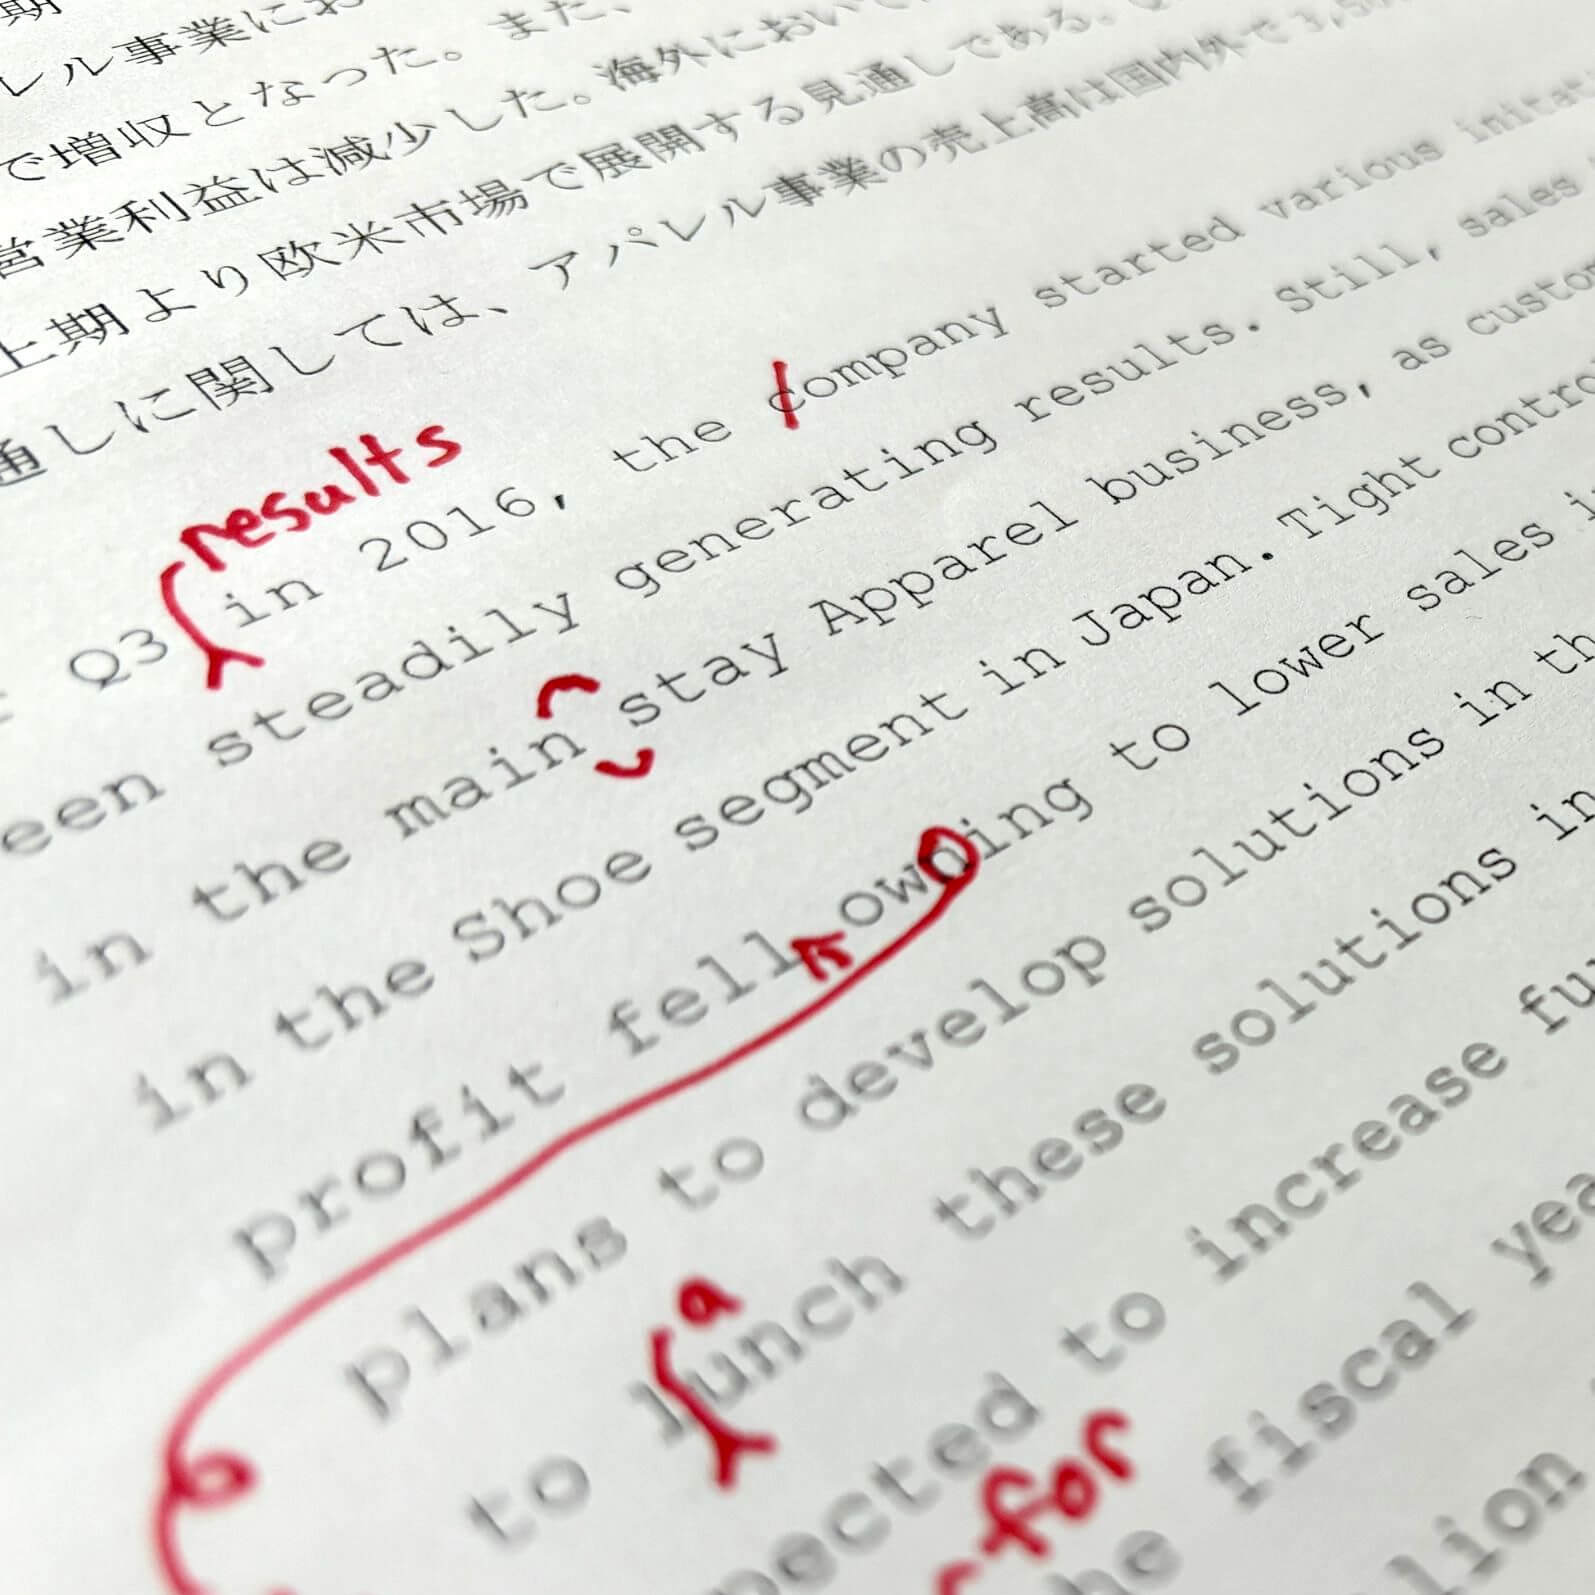 期
レル事業にお
で増収となった。また、
営業利益は減少した。海外において
上期より欧米市場で展開する見通しである。
通しに関しては、アパレル事業の売上高は国内外で 3,50
results
Q3 in 2016, the company started various initat
een steadily generating results. Still, sales
in the main stay Apparel business, as custom
in the Shoe segment in Japan. Tight contro
profit fell owning to lower sales i
plans to develop solutions in th
a
to lunch these solutions in
pected to increase fu
for
he fiscal yea
lion